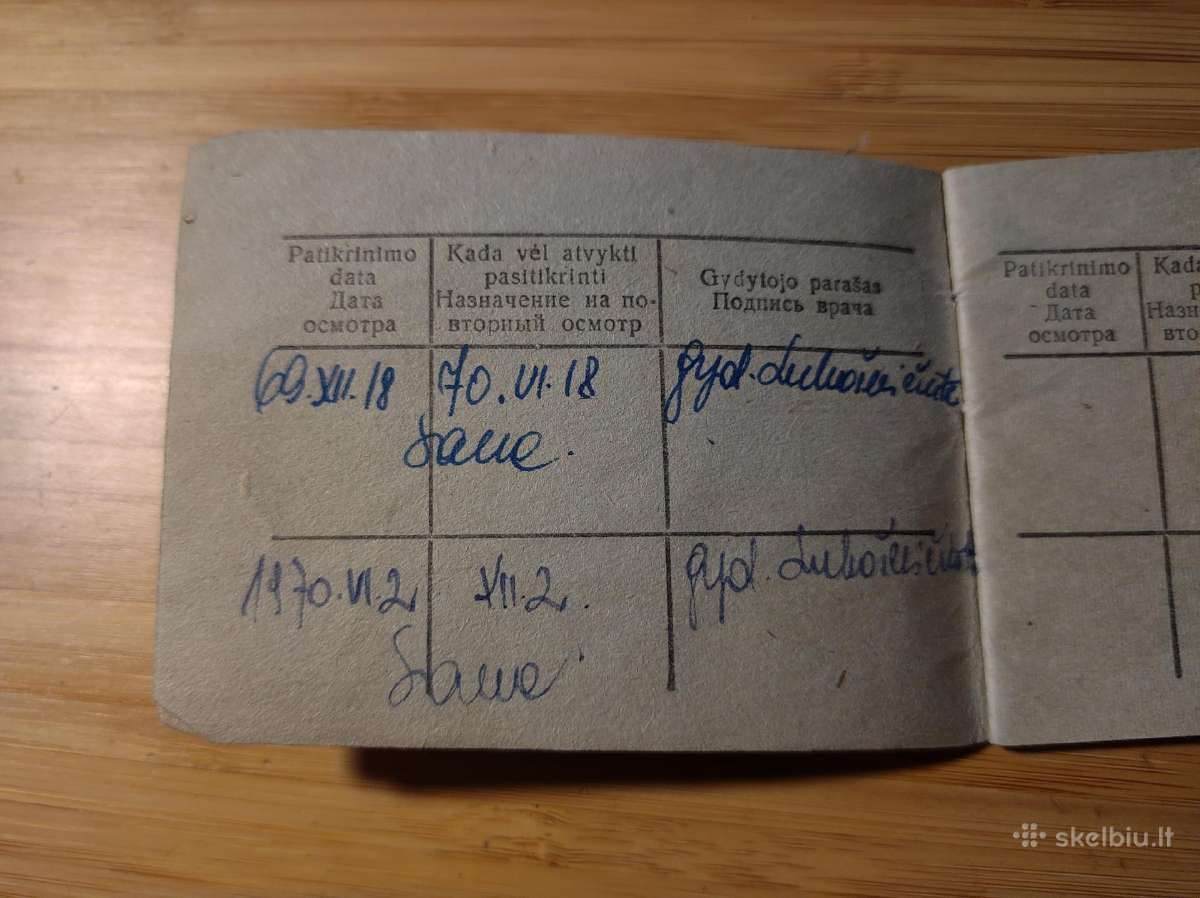 Patikrinimo data
Дата осмотра
Kada vėl atvykti pasitikrinti
Назначение на по-
вторный осмотр
Gydytojo parašas
Подпись врача
69.XII.18 70.VI.18 gyd.
1970.VI.2 XII.2. gyd.
Patikrinimo
data
Дата
осмотра
Kada
p
Назн
вто
skelbiu.lt